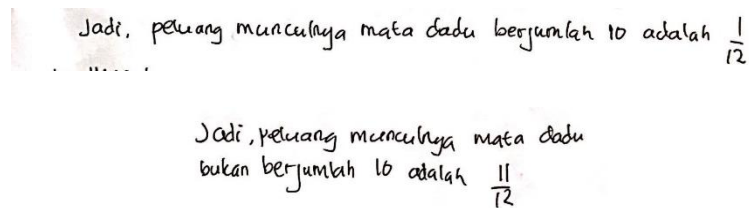 Jadi, peluang munculnya mata dadu berjumlah 10 adalah 1/12
Jadi, peluang munculnya mata dadu
bukan berjumlah 10 adalah 11/12